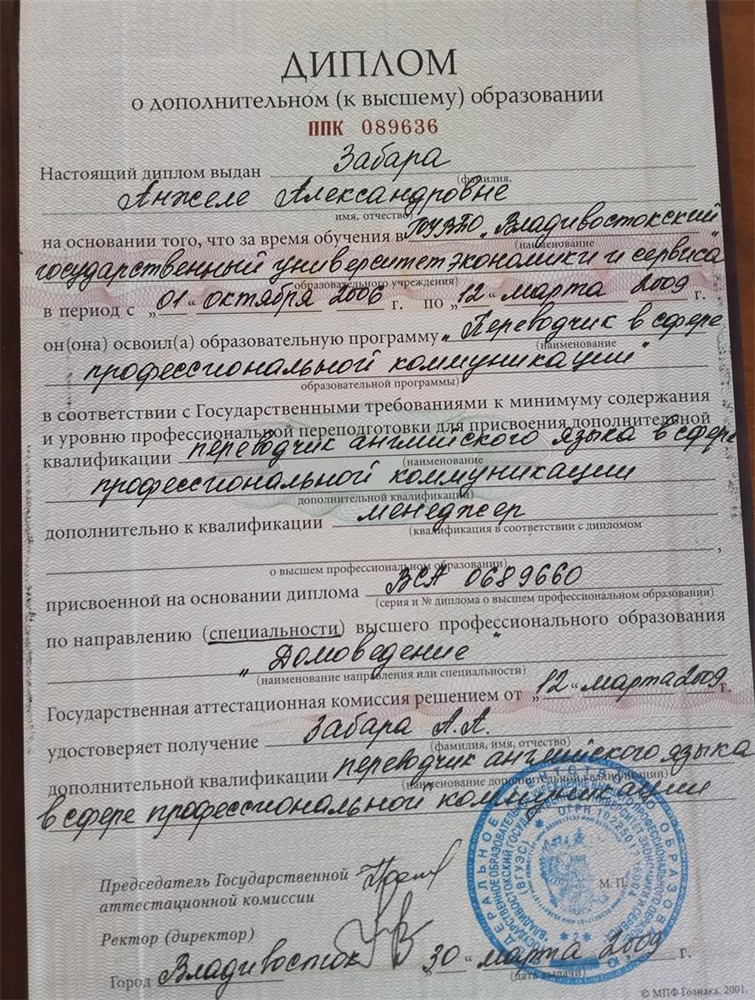 ДИПЛОМ
о дополнительном (к высшему) образовании
ППК 089636
Настоящий диплом выдан Забара
(фамилия,
Анжеле Александровне
имя, отчество)
на основании того, что за время обучения в ГОУВПО „Владивостокский
(наименование
государственный университет экономики и сервиса
образовательного учреждения)
в период с „01“ октября 2006 г. по „12“ марта 2009 г.
он(она) освоил(а) образовательную программу „Переводчик в сфере
(наименование
профессиональной коммуникации“
образовательной программы)
в соответствии с Государственными требованиями к минимуму содержания
и уровню профессиональной переподготовки для присвоения дополнительной
квалификации переводчик английского языка в сфере
(наименование
профессиональной коммуникации
дополнительной квалификации)
дополнительно к квалификации менеджер
(квалификация в соответствии с дипломом
,
о высшем профессиональном образовании)
присвоенной на основании диплома ВСА 0689660
(серия и № диплома о высшем профессиональном образовании)
по направлению (специальности) высшего профессионального образования
„Домоведение“
(наименование направления или специальности)
Государственная аттестационная комиссия решением от „12“ марта 2009 г.
удостоверяет получение Забара А.А.
(фамилия, имя, отчество)
дополнительной квалификации переводчик английского языка
(наименование дополнительной квалификации)
в сфере профессиональной коммуникации
Председатель Государственной
аттестационной комиссии
М.П.
Ректор (директор)
Город Владивосток „30“ марта 2009 г.
(дата выдачи)
© МПФ Гознака. 2001.